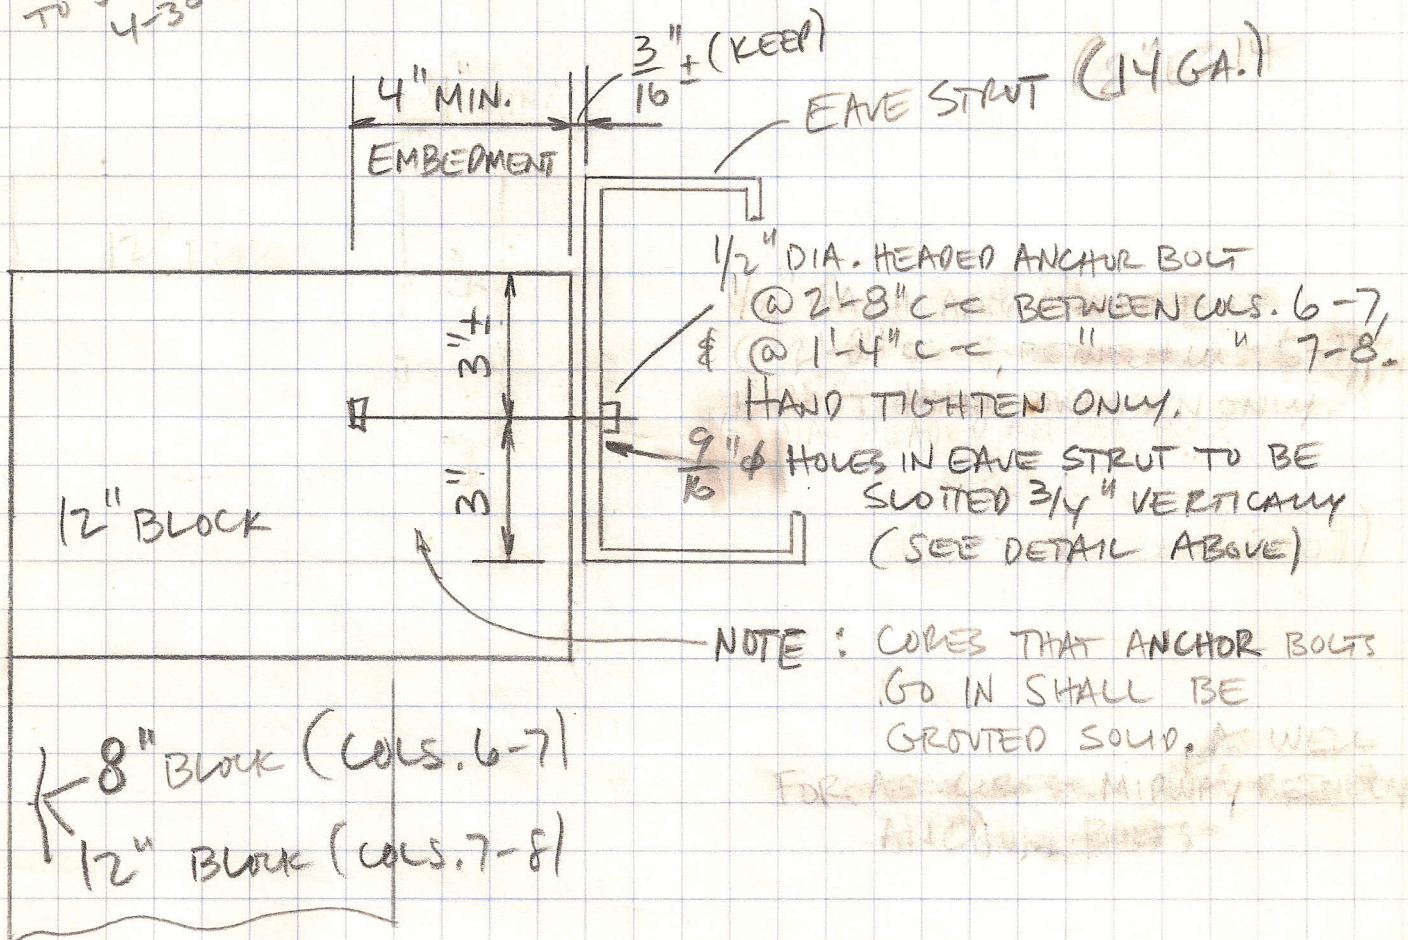 TO
4-3
3/16" ± (KEEP)
4" MIN.
EMBEDMENT
EAVE STRUT (14 GA.)
1/2" DIA. HEADED ANCHOR BOLT
@ 2'-8" C-C BETWEEN COLS. 6-7,
& @ 1'-4" C-C, " " 7-8.
HAND TIGHTEN ONLY.
9/16" ϕ HOLES IN EAVE STRUT TO BE
SLOTTED 3/4" VERTICALLY
(SEE DETAIL ABOVE)
3"±
3"
12" BLOCK
NOTE: CORES THAT ANCHOR BOLTS
GO IN SHALL BE
GROUTED SOLID. AS WELL
FOR MIDWAY BETWEEN
BOLTS
8" BLOCK (COLS. 6-7)
12" BLOCK (COLS. 7-8)